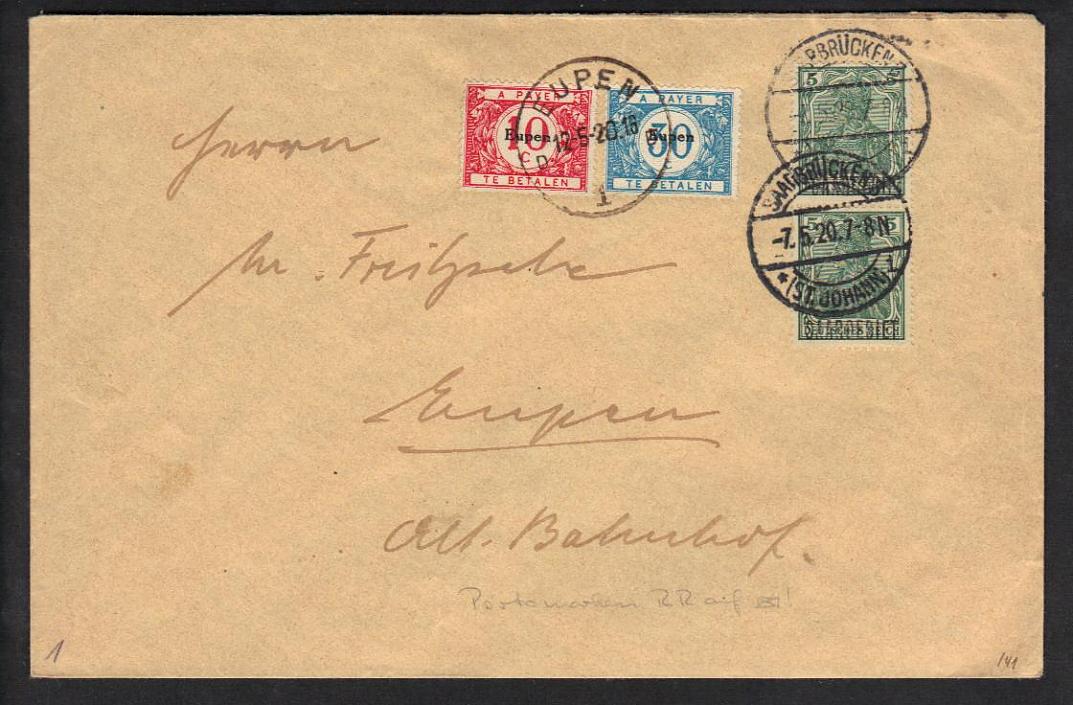 EUPEN
12-5-20.16
1
A PAYER
10
C
Eupen
TE BETALEN
A PAYER
30
Eupen
TE BETALEN
5
SAARBRÜCKEN
-7.5.20.7-8N
*(ST. JOHANN)1
5 5
SAARGEBIET
Herrn
Fritzsche
Eupen
Alt. Bahnhof.
Portomarken RR auf
1
/41